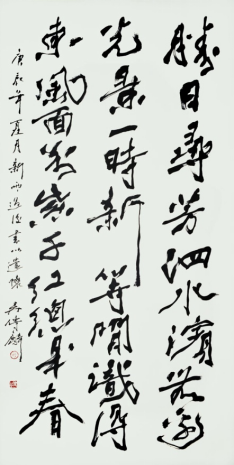 勝日尋芳泗水濱無邊
光景一時新等閒識得
東風面萬紫千紅總是春
庚辰年夏月新雨過後書以遣懷